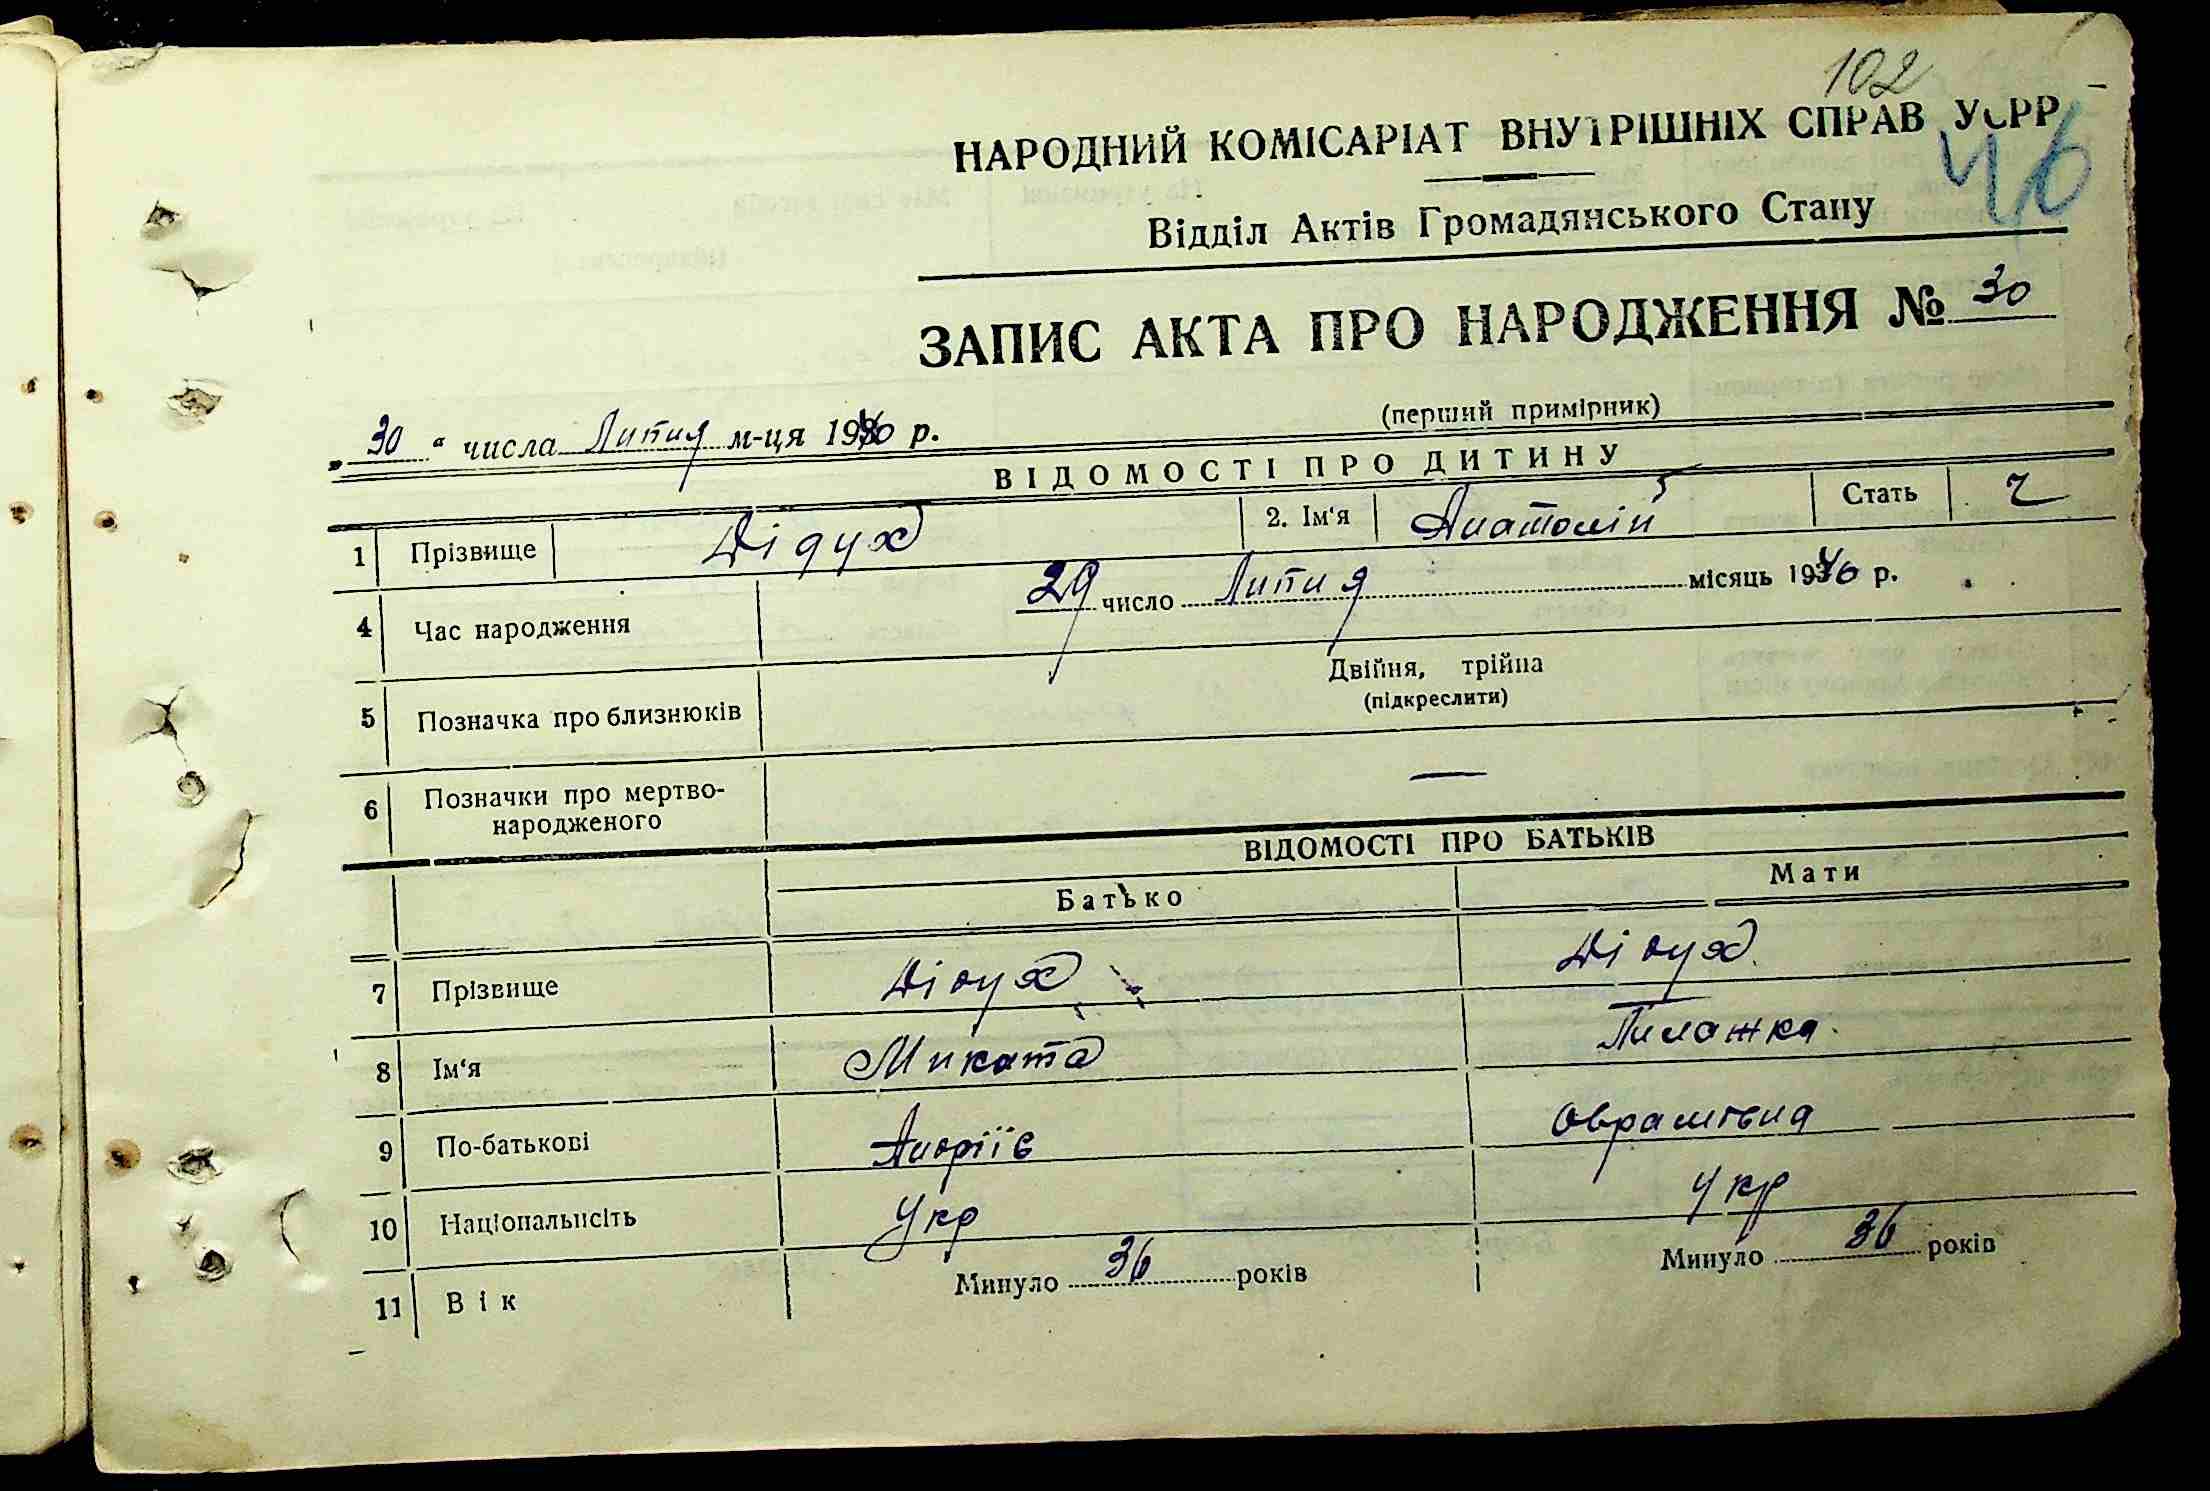 102
НАРОДНИЙ КОМІСАРІАТ ВНУТРІШНІХ СПРАВ УСРР
46
Відділ Актів Громадянського Стану
ЗАПИС АКТА ПРО НАРОДЖЕННЯ № 30
(перший примірник)
„ 30 “ числа Липня м-ця 1940 р.
ВІДОМОСТІ ПРО ДИТИНУ
1 Прізвище Дідух 2. Ім‘я Анатолій Стать ч
4 Час народження 29 число Липня місяць 1940 р.
5 Позначка про близнюків Двійня, трійна
(підкреслити)
6 Позначки про мертво-
народженого —
ВІДОМОСТІ ПРО БАТЬКІВ
Батько Мати
7 Прізвище Дідух Дідух
8 Ім‘я Миката Пилажка
9 По-батькові Андріїв Оврамівна
10 Національнсіть Укр Укр
11 Вік Минуло 36 років Минуло 36 років